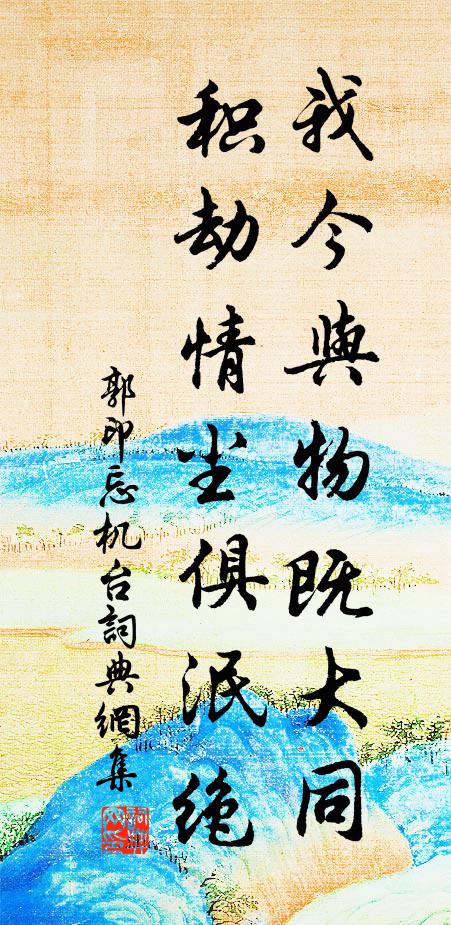 我今与物既大同
积劫情尘俱泯绝
郭印忘机台词典網集